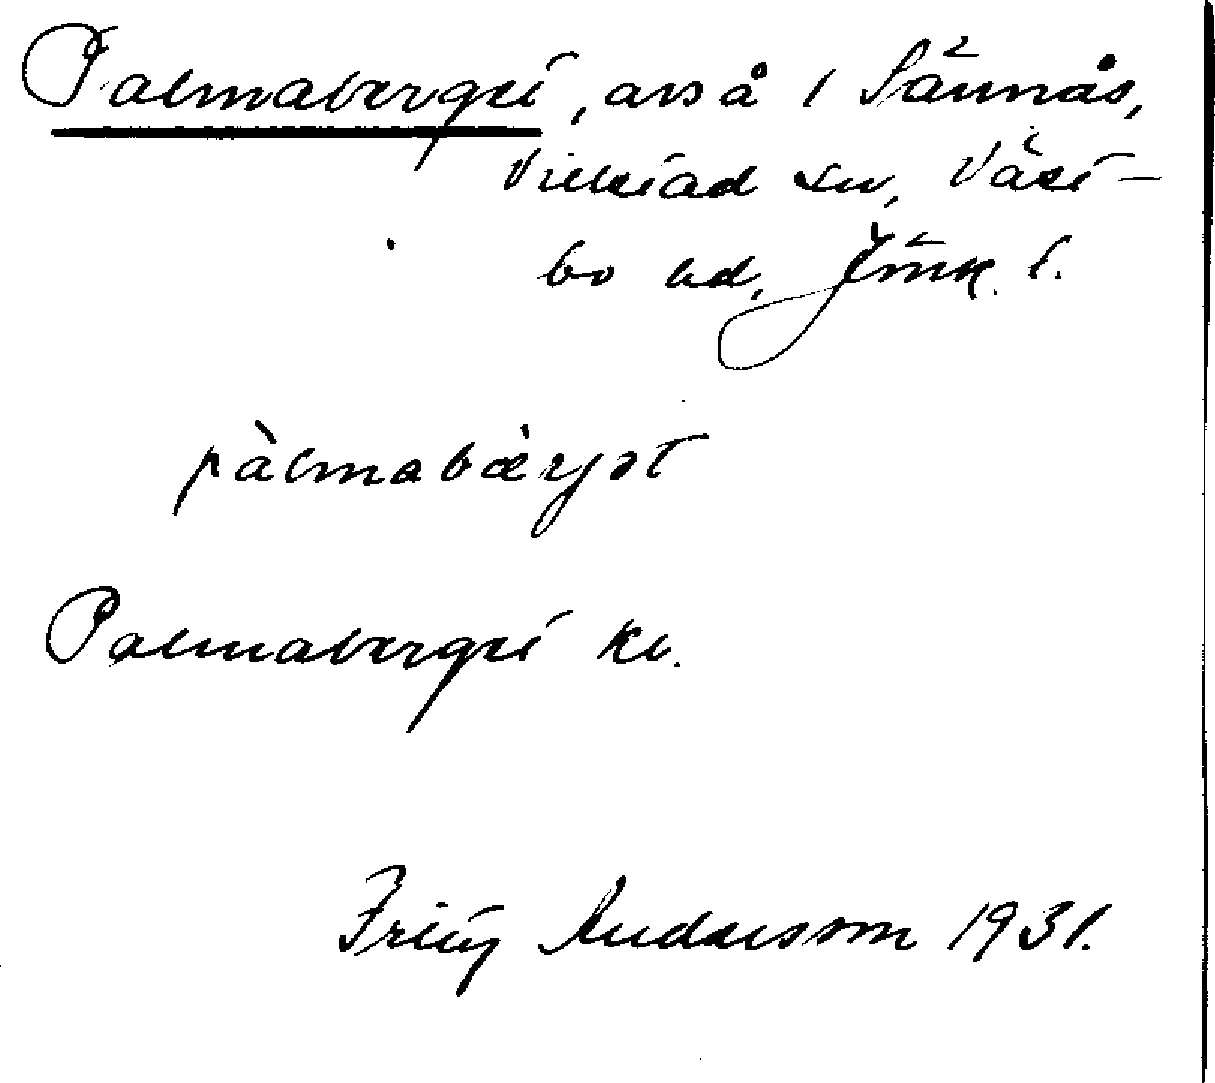 Palmaberget, avs å i Sännås,
Villstad sn, Väst-
bo hd, Jönk. l.
pàlmabæ̀rjət
Palmaberget kv.
Fritz Andersson 1931.